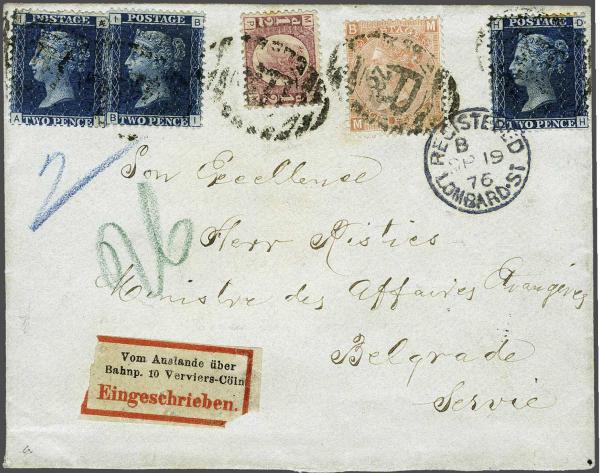 POSTAGE
TWO PENCE
POSTAGE
TWO PENCE
POSTAGE
TWO PENCE
REGISTERED
B
SP 19
76
LOMBARD·ST
2
Son Excellence
Herr Ristics
Ministre des Affaires Etrangéres
Belgrade
Servie
Vom Auslande über
Bahnp. 10 Verviers-Cöln
Eingeschrieben.